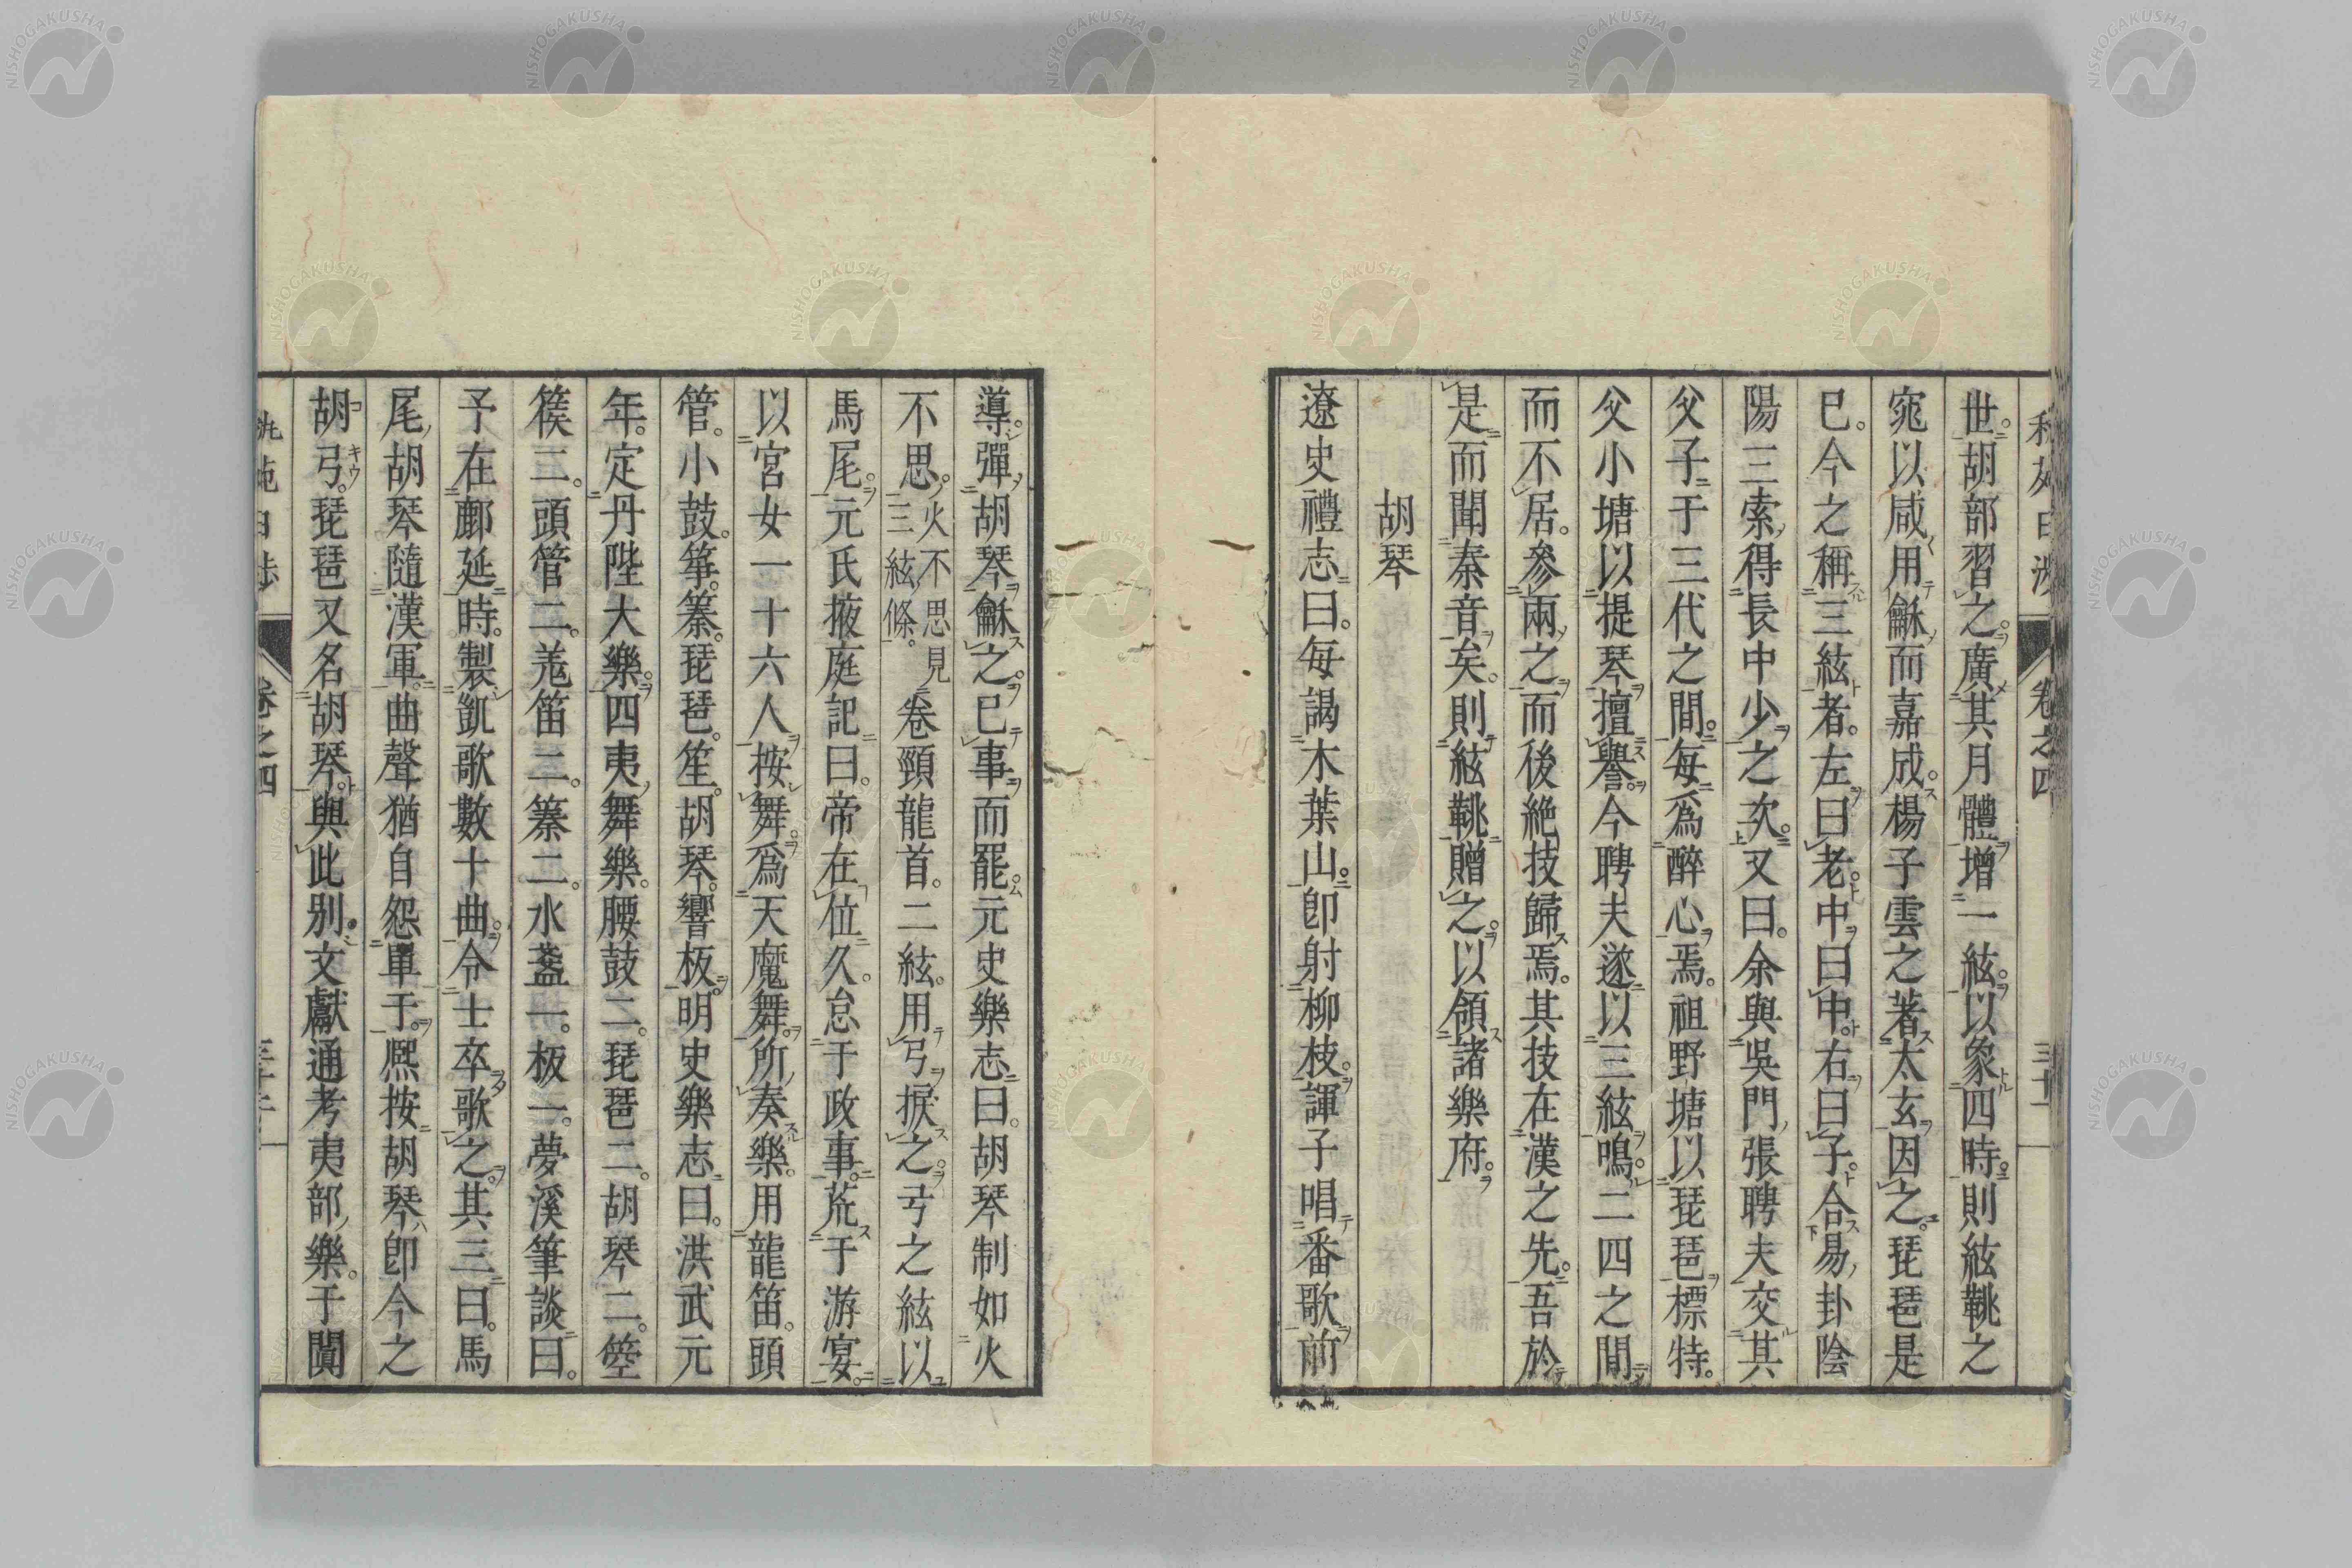 世。胡部習之。廣其月體增一絃。以象四時。則絃鞉之
窕以咸用龢而嘉成。楊子雲之著太玄因之。琵琶是
已。今之稱三絃者。左曰老。中曰中。右曰子。合易卦陰
陽三索得長中少之次。又曰。余與吳門張聘夫交其
父子于三代之間。每爲醉心焉。祖野塘以琵琶標特。
父小塘以提琴擅譽。今聘夫遂以三絃鳴。二四之間
而不居。參兩之而後絶技歸焉。其技在漢之先。吾於
是而聞秦音矣。則絃鞉贈之。以領諸樂府。
胡琴
遼史禮志曰。每謁木葉山。卽射柳枝。諢子唱番歌前
導。彈胡琴龢之。已事而罷。元史樂志曰。胡琴制如火
不思。火不思見三絃條。卷頸龍首。二絃。用弓捩之。弓之絃以
馬尾。元氏掖庭記曰。帝在位久。怠于政事。荒于游宴。
以宮女一十六人按舞。爲天魔舞。所奏樂。用龍笛。頭
管。小鼓。箏。篥。琵琶。笙。胡琴。響板。明史樂志曰。洪武元
年。定丹陛大樂。四夷舞樂。腰鼓二。琵琶二。胡琴二。箜
篌二。頭管二。羗笛二。篥二。水盞一。板一。夢溪筆談曰。
予在鄜延時。製凱歌數十曲。令士卒歌之。其三曰。馬
尾胡琴隨漢軍。曲聲猶自怨單于。熈按胡琴卽今之
胡弓。琵琶又名胡琴。與此别。文獻通考夷部樂。于闐
卷之四
三十一
卷之四